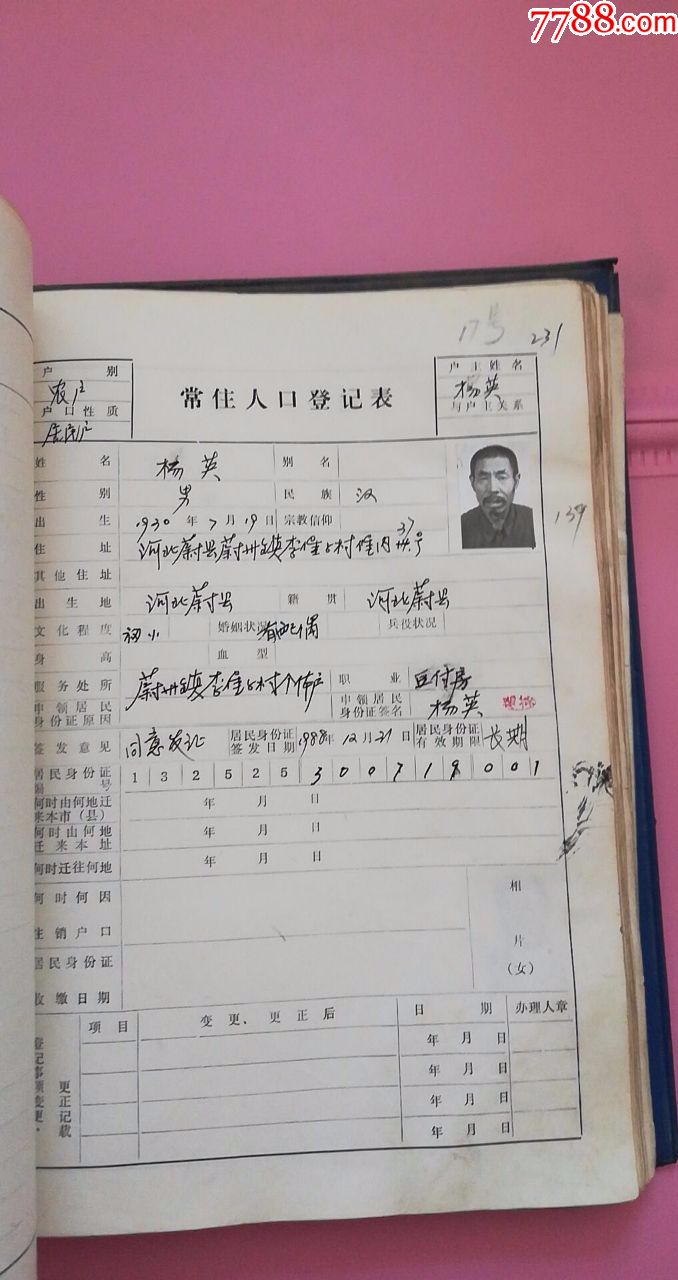 7788.com
17号 231
户别 农户
户口性质 居民户
常住人口登记表
户主姓名 杨英
与户主关系
姓名 杨英 别名
性别 男 民族 汉
出生 1930年7月19日 宗教信仰
139
住址 河北蔚县蔚州镇李堡子村堡内37号
其他住址
出生地 河北蔚县 籍贯 河北蔚县
文化程度 初小 婚姻状况 有配偶 兵役状况
身高 血型
服务处所 蔚州镇李堡子村个体户 职业 豆付房
申领居民身份证原因 申领居民身份证签名 杨英
签发意见 同意发证 居民身份证签发日期 1988年12月21日 居民身份证有效期限 长期
居民身份证编号 1 3 2 5 2 5 3 0 0 7 1 9 0 0 1
何时由何地迁来本市（县） 年 月 日
何时由何地迁来本址 年 月 日
何时迁往何地 年 月 日
何时何因
注销户口
相片（女）
居民身份证
收缴日期
登记事项变更、更正记载
项目 变更、更正后 日期 办理人章
年 月 日
年 月 日
年 月 日
年 月 日